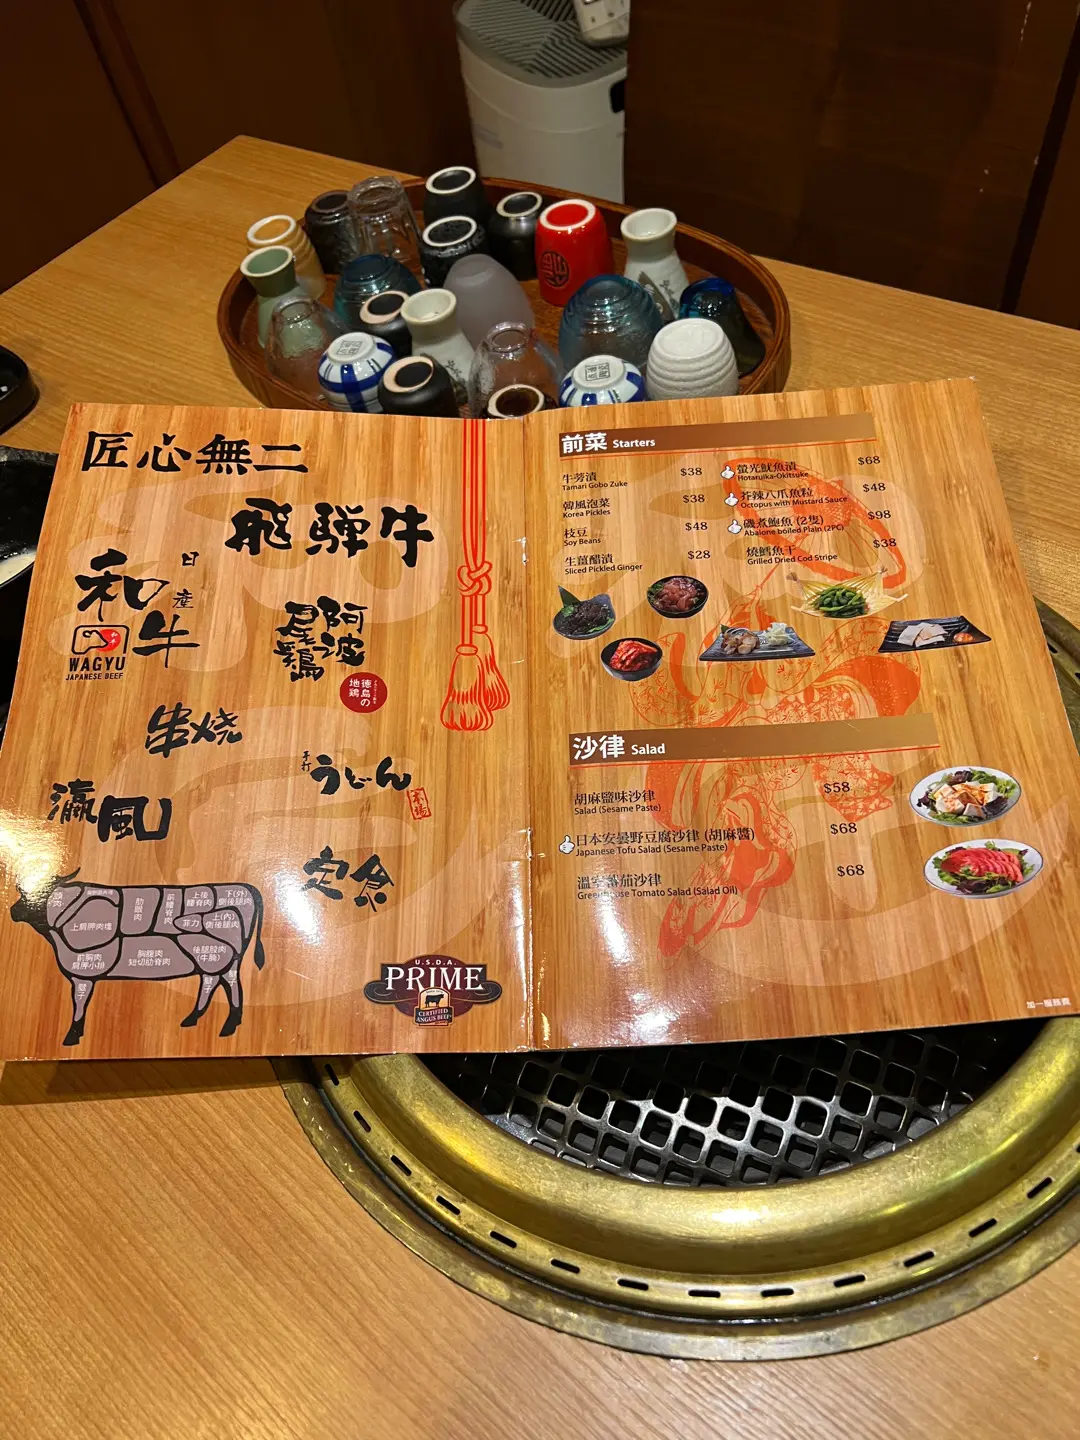 匠心無二
飛騨牛
日產
和牛
WAGYU
JAPANESE BEEF
阿波尾鶏
徳島の
地鶏
串燒
手打
うどん
本場
瀛風
定食
上肩胛肉塊
前胸肉
肩胛小排
肋眼肉
胸腹肉
短切肋脊肉
前腰脊肉
上後
腰脊肉
下(外)
側後腿肉
菲力
上(內)
側後腿肉
後腿股肉
(牛腩)
腱子
腱子
腱子
U.S.D.A.
PRIME
CERTIFIED
ANGUS BEEF
前菜 Starters
牛蒡漬 $38
Tamari Gobo Zuke
韓風泡菜 $38
Korea Pickles
枝豆 $48
Soy Beans
生薑醋漬 $28
Sliced Pickled Ginger
螢光魷魚漬 $68
Hotaruika-Okitsuke
芥辣八爪魚粒 $48
Octopus with Mustard Sauce
磯煮鮑魚 (2隻) $98
Abalone boiled Plain (2PC)
燒鱈魚干 $38
Grilled Dried Cod Stripe
沙律 Salad
胡麻鹽味沙律 $58
Salad (Sesame Paste)
日本安曇野豆腐沙律 (胡麻醬) $68
Japanese Tofu Salad (Sesame Paste)
溫室蕃茄沙律 $68
Greenhouse Tomato Salad (Salad Oil)
加一服務費